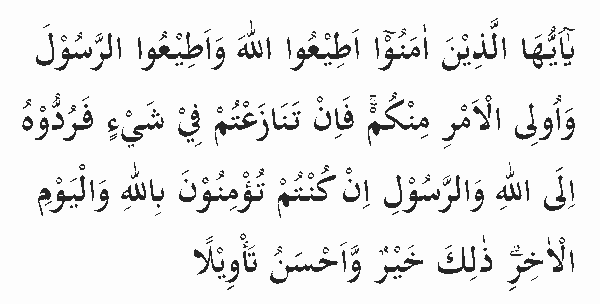 يٰۤاَيُّهَا الَّذِيْنَ اٰمَنُوْۤا اَطِيْعُوا اللّٰهَ وَاَطِيْعُوا الرَّسُوْلَ
وَاُولِى الْاَمْرِ مِنْكُمْۚ فَاِنْ تَنَازَعْتُمْ فِيْ شَيْءٍ فَرُدُّوْهُ
اِلَى اللّٰهِ وَالرَّسُوْلِ اِنْ كُنْتُمْ تُؤْمِنُوْنَ بِاللّٰهِ وَالْيَوْمِ
الْاٰخِرِۗ ذٰلِكَ خَيْرٌ وَّاَحْسَنُ تَأْوِيْلًا